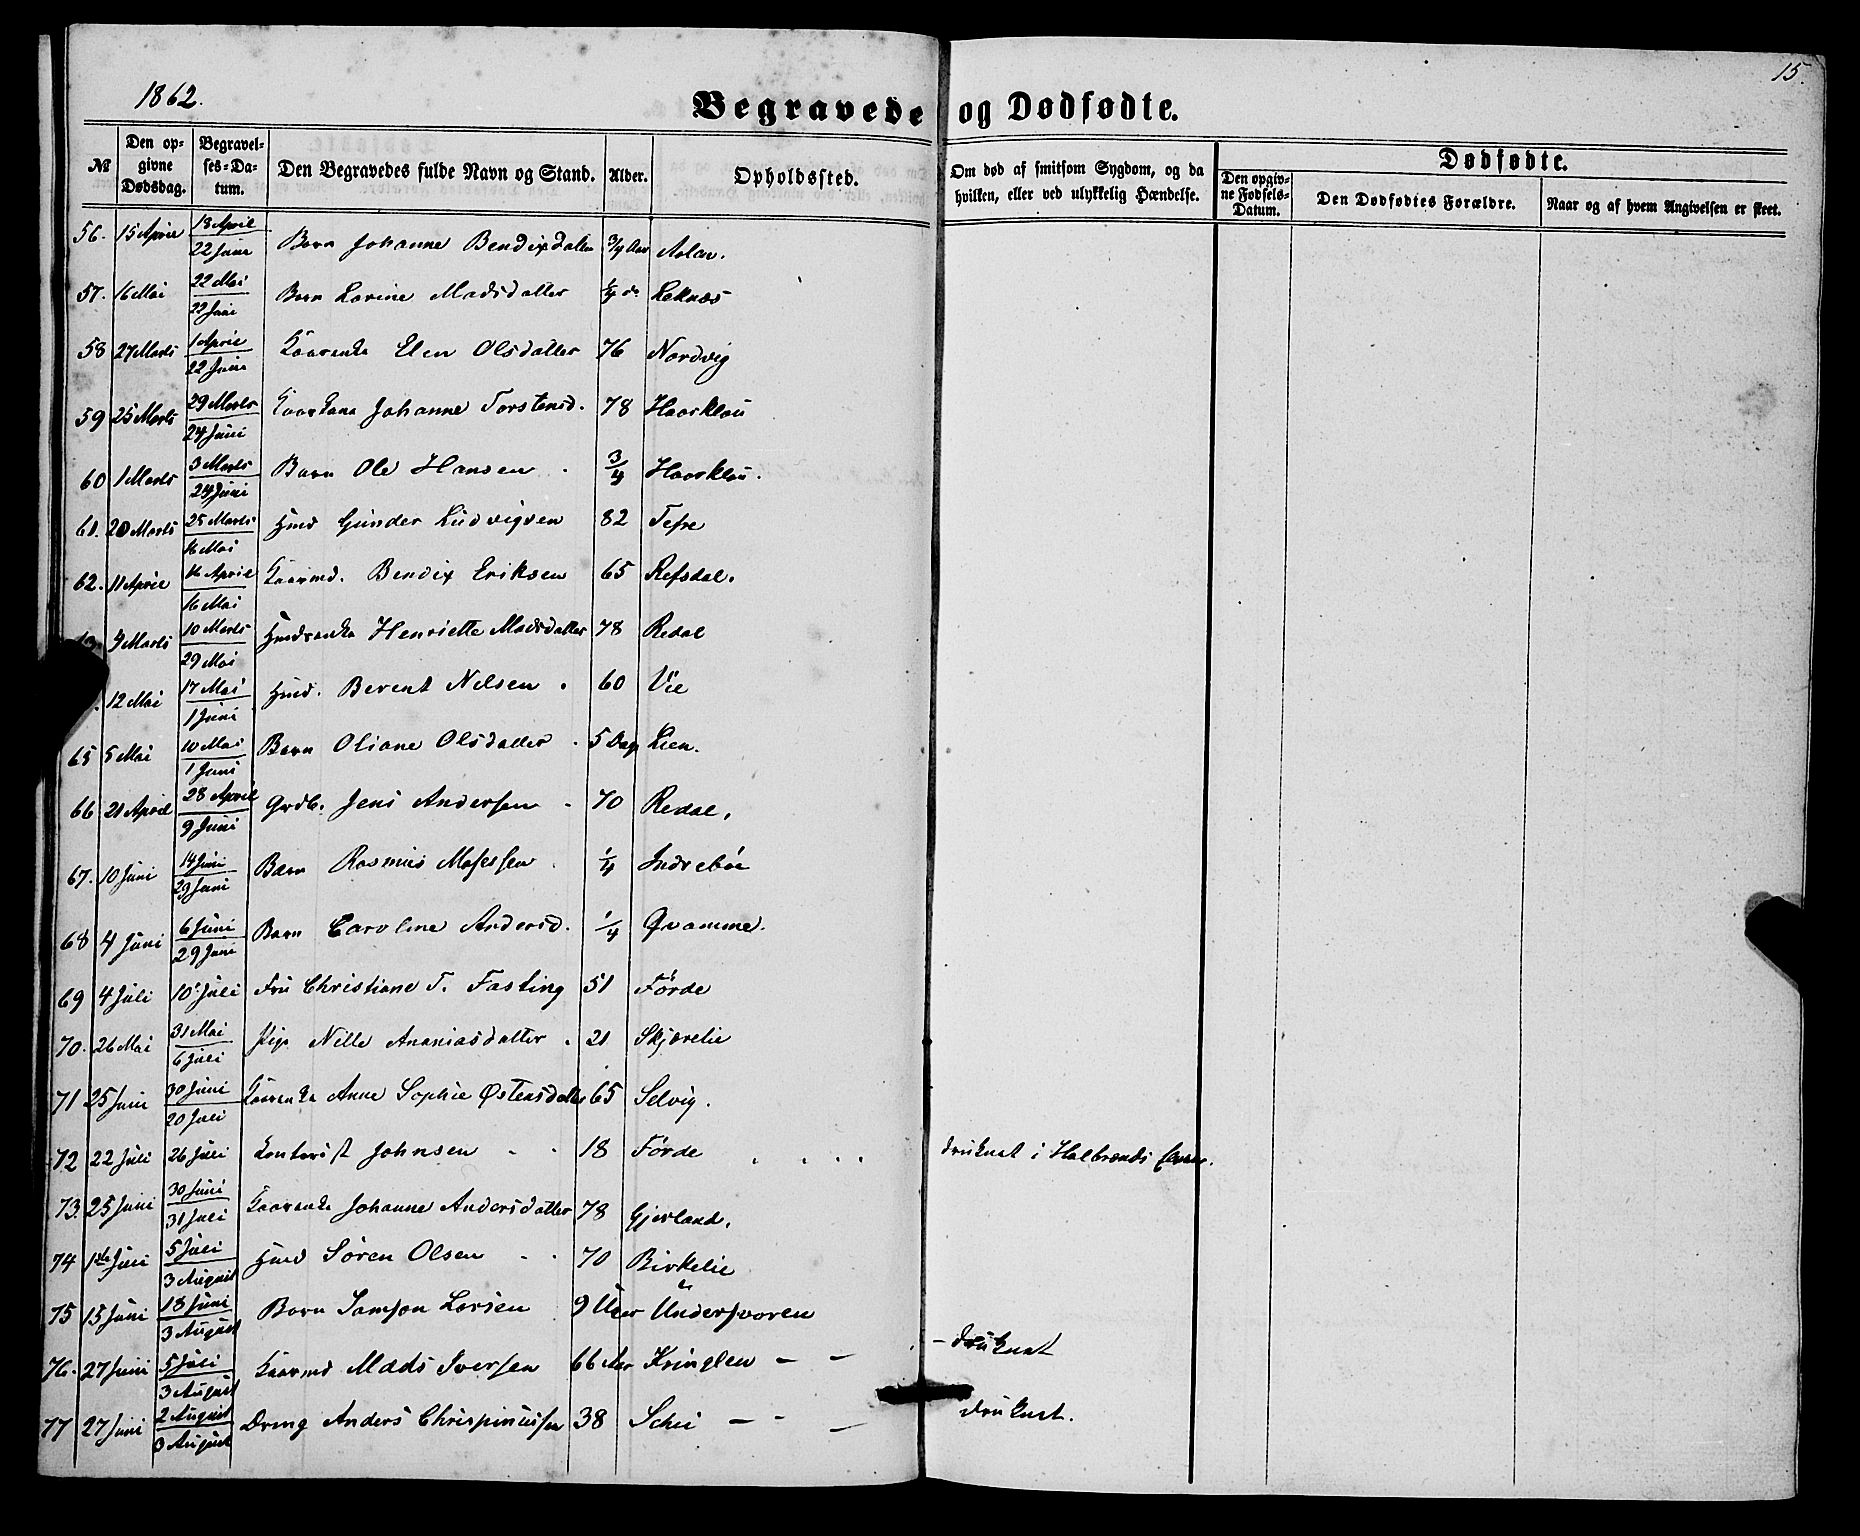 15.
1862.
Begravede og Dødfødte.
№ Den opgivne Dødsdag. Begravelses-Datum. Den Begravedes fulde Navn og Stand. Alder. Opholdssted. Om død af smitsom Sygdom, og da hvilken, eller ved ulykkelig Hændelse. Dødfødte.
Den opgivne Fødsels-Datum. Den Dødfødtes Forældre. Naar og af hvem Angivelsen er skeet.
56. 15 April 18 April 22 Juni Barn Johanne Bendixdatter 3/4 Aar
57. 16 Mai 22 Mai 22 Juni Barn Lovine Madsdatter 1/4 do Leknæs
58 27 Marts 1 April 22 Juni Kaarenke Elen Olsdatter 76 Nordvig
59 25 Marts 29 Marts 24 Juni Kaarkone Johanne Torstensd. 78 Haasklou
60 1 Marts 3 Marts 24 Juni Barn Ole Hansen 3/4 Haasklou.
61. 20 Marts 25 Marts 16 Mai Hmd Gunder Ludvigsen 82 Tefre
62. 11 April 16 April 16 Mai Kaarmd. Bendix Eriksen 65 Refsdal.
4 Marts 10 Marts 29 Mai Hmdsenke Henriette Madsdatter 78 Redal
12 Mai 17 Mai 1 Juni Hmd. Berent Nilsen. 60 Vie
65 5 Mai 10 Mai 1 Juni Barn Oliane Olsdatter 5 Dag Lien.
66 21 April 28 April 9 Juni Grdb. Jens Andersen 70 Redal,
67. 10 Juni 14 Juni 29 Juni Barn Rasmus Mosessen 1/4 Indrebøe
68 4 Juni 6 Juni 29 Juni Barn Caroline Andersd. 1/4 Qvamme.
69 4 Juli 10 Juli Fru Christiane T. Fasting 51 Förde
70. 26 Mai 31 Mai 6 Juli Pige Nille Ananiasdatter. 21 Skjærelie
71 25 Juni 30 Juni 20 Juli Kaarenke Anne Sophie Østensdatter 65 Selvig.
72 22 Juli 26 Juli Kontorist Johnsen 18 Förde druknet i Halbrends Elven.
73. 25 Juni 30 Juni 31 Juli Kaarenke Johanne Andersdatter 78 Gjerland,
74 1ste Juli 5 Juli 3 August Hmd Sören Olsen 70 Birkelie
75 15 Juni 18 Juni 3 August Barn Samson Larsen 9 Uger Undersvoren
76. 27 Juni 5 Juli 3 August Kaarmd Mads Iversen 66 Aar Kringlen — — - druknet
77 27 Juni 2 August 3 August Dreng Anders Chrispinussen 38 Schei — - — druknet.